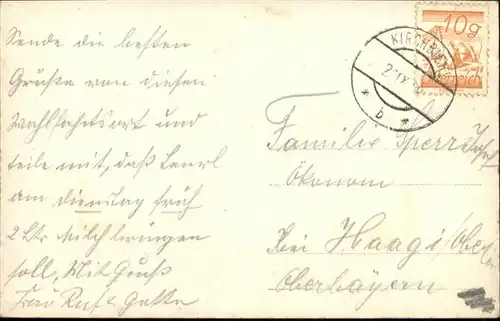 Sende die besten
Grüße von diesem
Wahlfahrtsort und
teile mit, daß Leuerl
am dienstag früh
2 Ltr Milch bringen
soll, Mit Gruß
Frau
10g
KIRCH
2.IX.
* b *
Familie Sperr Josef
Ökonom
bei Haag i/Ober
Oberbayern